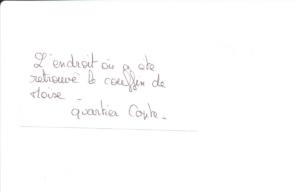 L'endroit où a ete
retrouvé le couffin de
Moise -
quartier Copte -